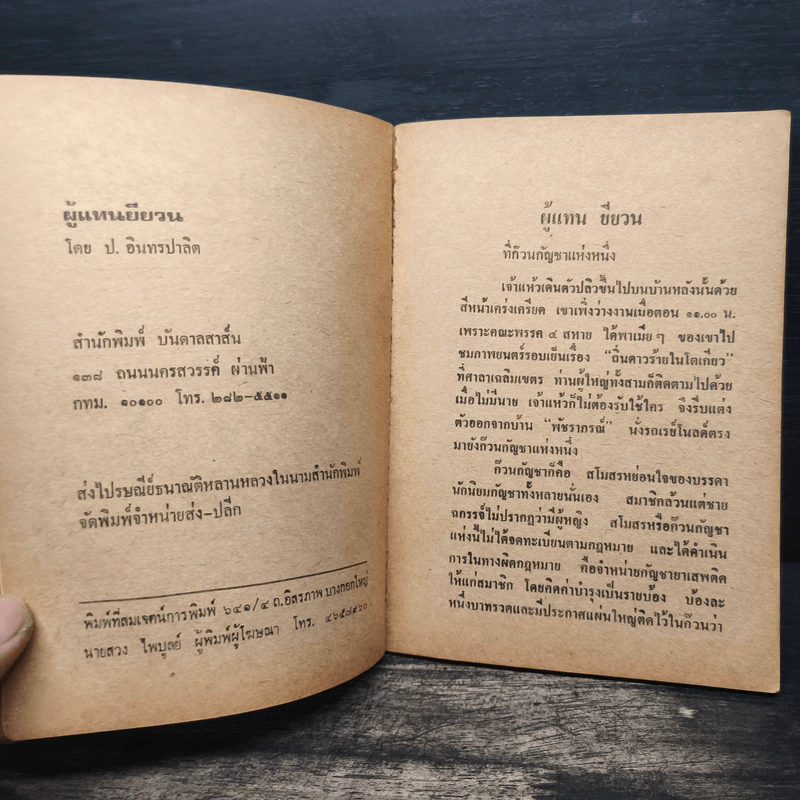 ผู้แทนยียวน
โดย ป. อินทรปาลิต
สำนักพิมพ์ บันดาลสาส์น
๑๓๘ ถนนนครสวรรค์ ผ่านฟ้า
กทม. ๑๐๑๐๐ โทร. ๒๘๒-๕๕๑๑
ส่งไปรษณีย์ธนาณัติหลานหลวงในนามสำนักพิมพ์
จัดพิมพ์จำหน่ายส่ง-ปลีก
พิมพ์ที่สมเจตน์การพิมพ์ ๖๔๑/๔ ถ.อิสรภาพ บางกอกใหญ่
นายสวง ไพบูลย์ ผู้พิมพ์ผู้โฆษณา โทร. ๔๖๕๘๙๖๐
ผู้แทน ยียวน
ที่ก๊วนกัญชาแห่งหนึ่ง
เจ้าแห้วเดินตัวปลิวขึ้นไปบนบ้านหลังนั้นด้วย
สีหน้าเคร่งเครียด เขาเพิ่งว่างงานเมื่อตอน ๑๑.๐๐ น.
เพราะคณะพรรค ๔ สหาย ได้พาเมีย ๆ ของเขาไป
ชมภาพยนตร์รอบเย็นเรื่อง “ถิ่นดาวร้ายในโตเกียว”
ที่ศาลาเฉลิมเขตร ท่านผู้ใหญ่ทั้งสามก็ติดตามไปด้วย
เมื่อไม่มีนาย เจ้าแห้วก็ไม่ต้องรับใช้ใคร จึงรีบแต่ง
ตัวออกจากบ้าน “พัชราภรณ์” นั่งรถเรย์โนลด์ตรง
มายังก๊วนกัญชาแห่งหนึ่ง
ก๊วนกัญชาก็คือ สโมสรหย่อนใจของบรรดา
นักนิยมกัญชาทั้งหลายนั่นเอง สมาชิกล้วนแต่ชาย
ฉกรรจ์ไม่ปรากฏว่ามีผู้หญิง สโมสรหรือก๊วนกัญชา
แห่งนี้ไม่ได้จดทะเบียนตามกฎหมาย และได้ดำเนิน
การในทางผิดกฎหมาย คือจำหน่ายกัญชายาเสพติด
ให้แก่สมาชิก โดยคิดค่าบำรุงเป็นรายบ้อง บ้องละ
หนึ่งบาทรวดและมีประกาศแผ่นใหญ่ติดไว้ในก๊วนว่า